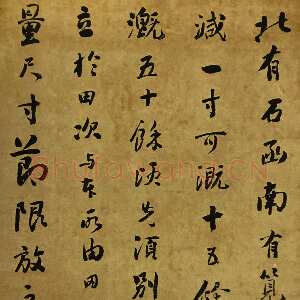 北有石函南有筧
減一寸可溉十五餘
溉五十餘頃先須別
立於田次与本所由田
量尺寸節限放